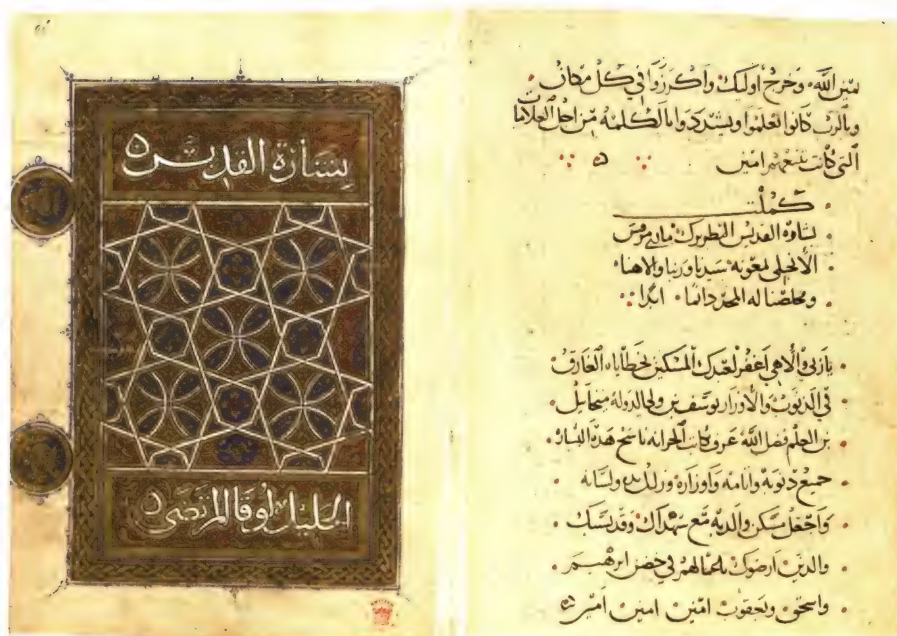 يمين الله وخرج اوليك واكرزوا في كل مكان
وبالرب كانوا تعلموا ويشددوا بالكلمه من اجل العلامات
التي كانت تتبعهم امين
كملت
بشارة القديس البطريرك ماري مرقس
الانجلي بمعونه سيدنا وربنا والاهنا
ومخلصنا له المجد دائما ابدا
يا ربي والاهي اغفر لعبدك المسكين بخطاياه الغارق
في الذنوب والاوزار يوسف بن ولي الدوله ميخايل
بن العلم فضل الله عرف بكاتب الخزانه ناسخ هذه البشاره
جميع ذنوبه واثامه واوزاره وزلل يده ولسانه
واجعل مسكن والديه مع شهداك وقديسيك
والدين ارضوك باعمالهم في حضن ابرهيم
واسحق ويعقوب امين امين امين
بشارة القديس
الجليل لوقا المرتضى